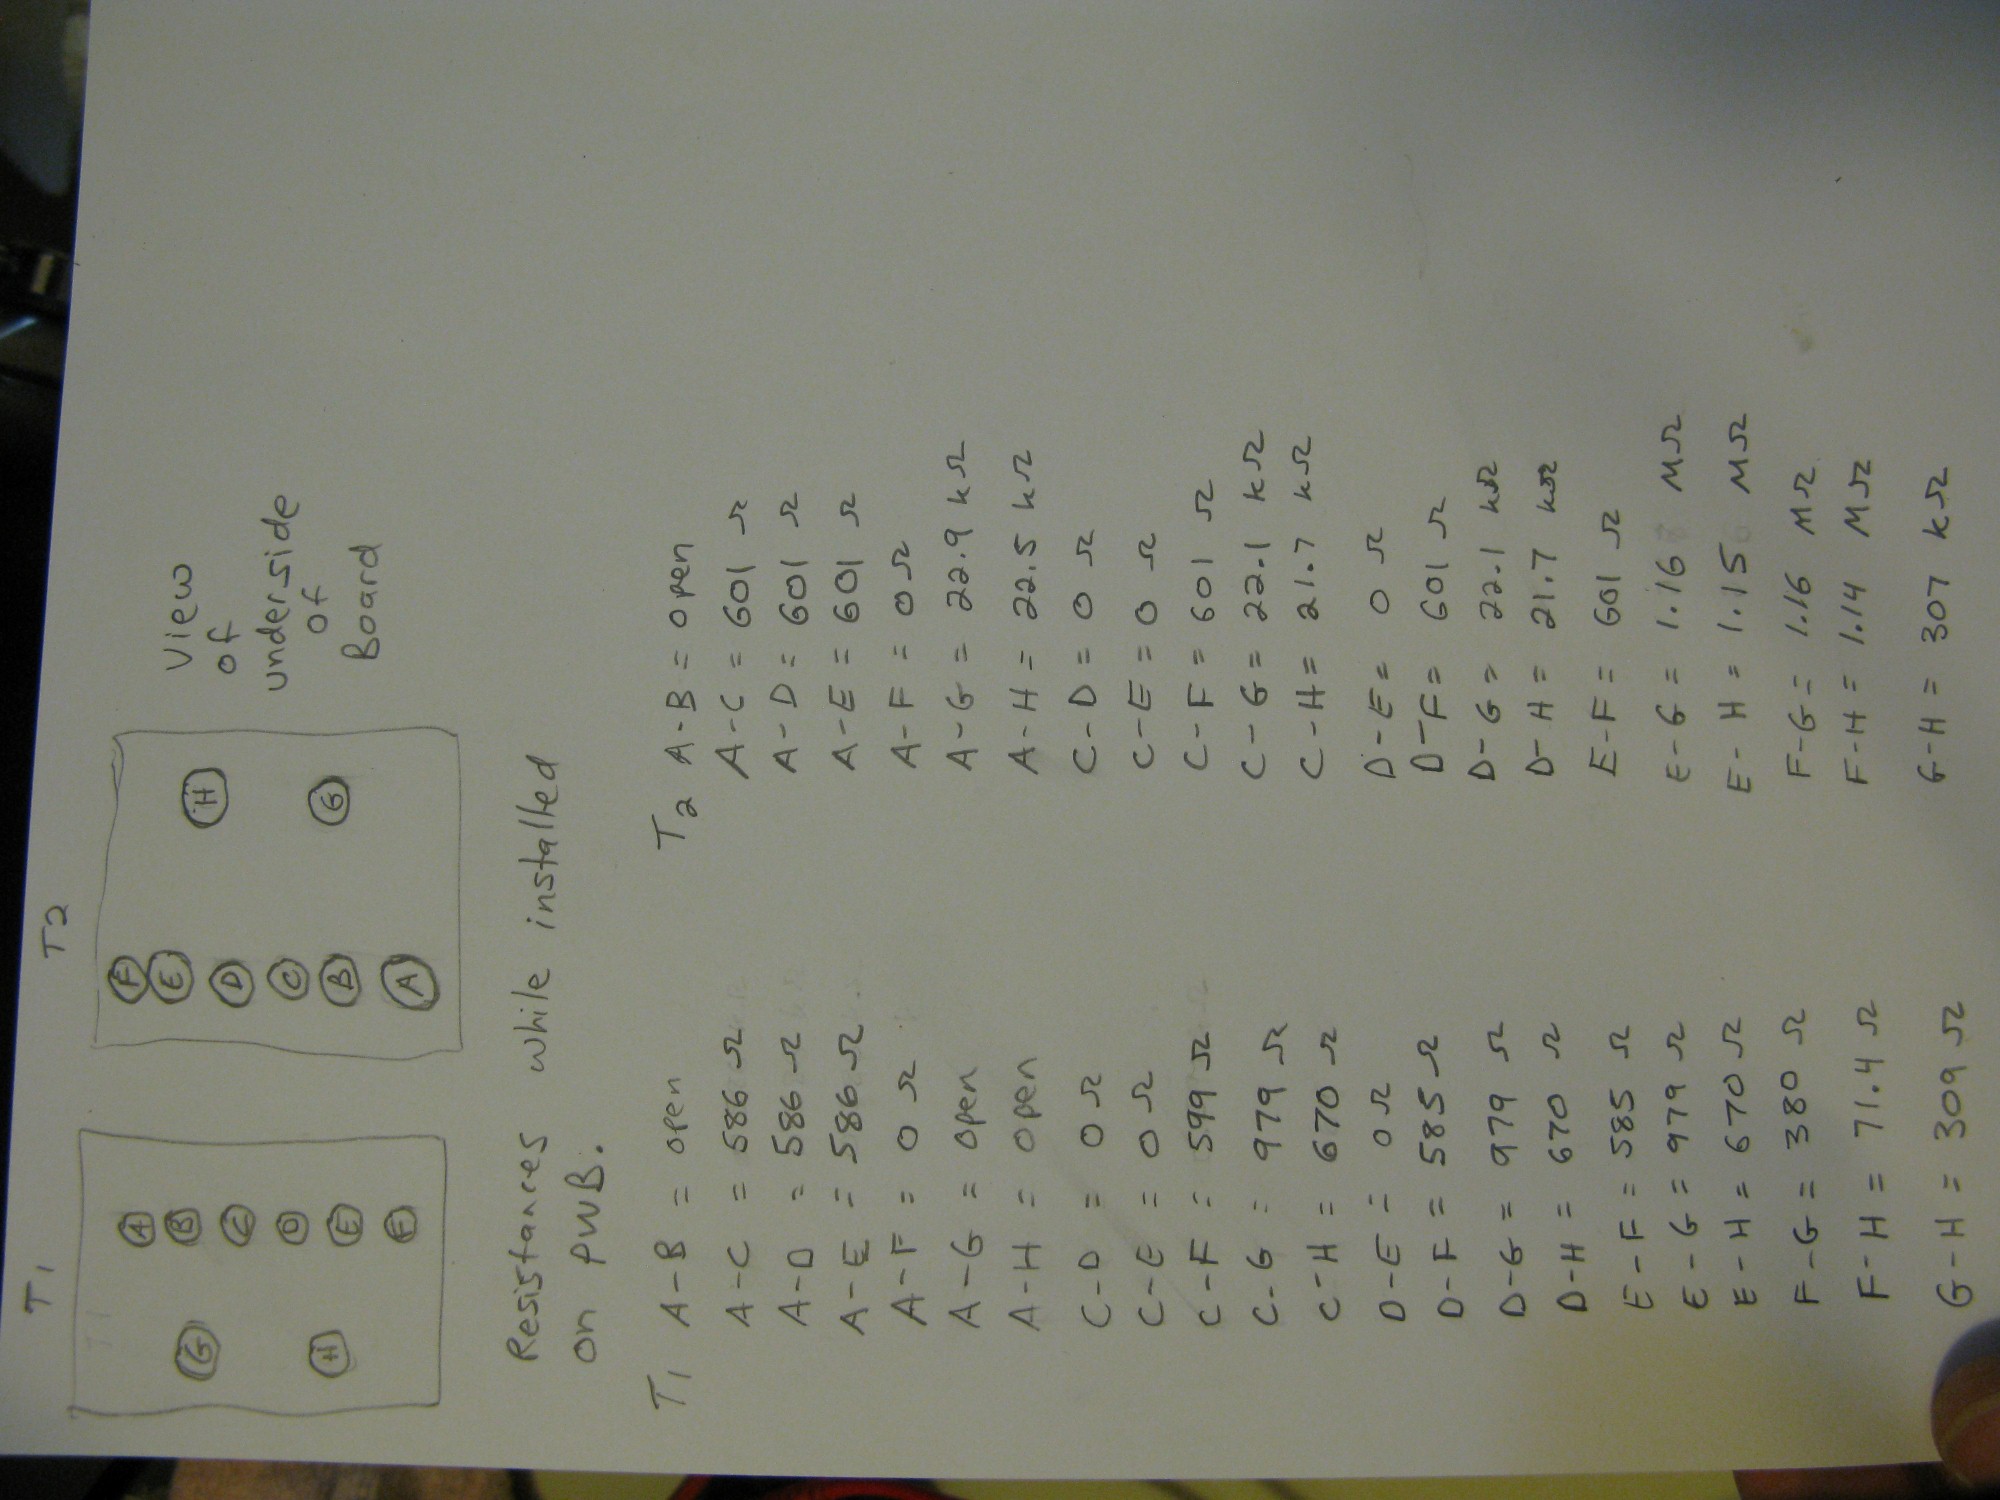 T1
T2
A
B
C
D
E
F
G
H
F
E
D
C
B
A
H
G
View
of
underside
of
Board
Resistances while installed
on PWB.
T1 A-B = open
A-C = 586 Ω
A-D = 586 Ω
A-E = 586 Ω
A-F = 0 Ω
A-G = open
A-H = open
C-D = 0 Ω
C-E = 0 Ω
C-F = 599 Ω
C-G = 979 Ω
C-H = 670 Ω
D-E = 0 Ω
D-F = 585 Ω
D-G = 979 Ω
D-H = 670 Ω
E-F = 585 Ω
E-G = 979 Ω
E-H = 670 Ω
F-G = 380 Ω
F-H = 71.4 Ω
G-H = 309 Ω
T2 A-B = open
A-C = 601 Ω
A-D = 601 Ω
A-E = 601 Ω
A-F = 0 Ω
A-G = 22.9 kΩ
A-H = 22.5 kΩ
C-D = 0 Ω
C-E = 0 Ω
C-F = 601 Ω
C-G = 22.1 kΩ
C-H = 21.7 kΩ
D-E = 0 Ω
D-F = 601 Ω
D-G = 22.1 kΩ
D-H = 21.7 kΩ
E-F = 601 Ω
E-G = 1.16 MΩ
E-H = 1.15 MΩ
F-G = 1.16 MΩ
F-H = 1.14 MΩ
G-H = 307 kΩ